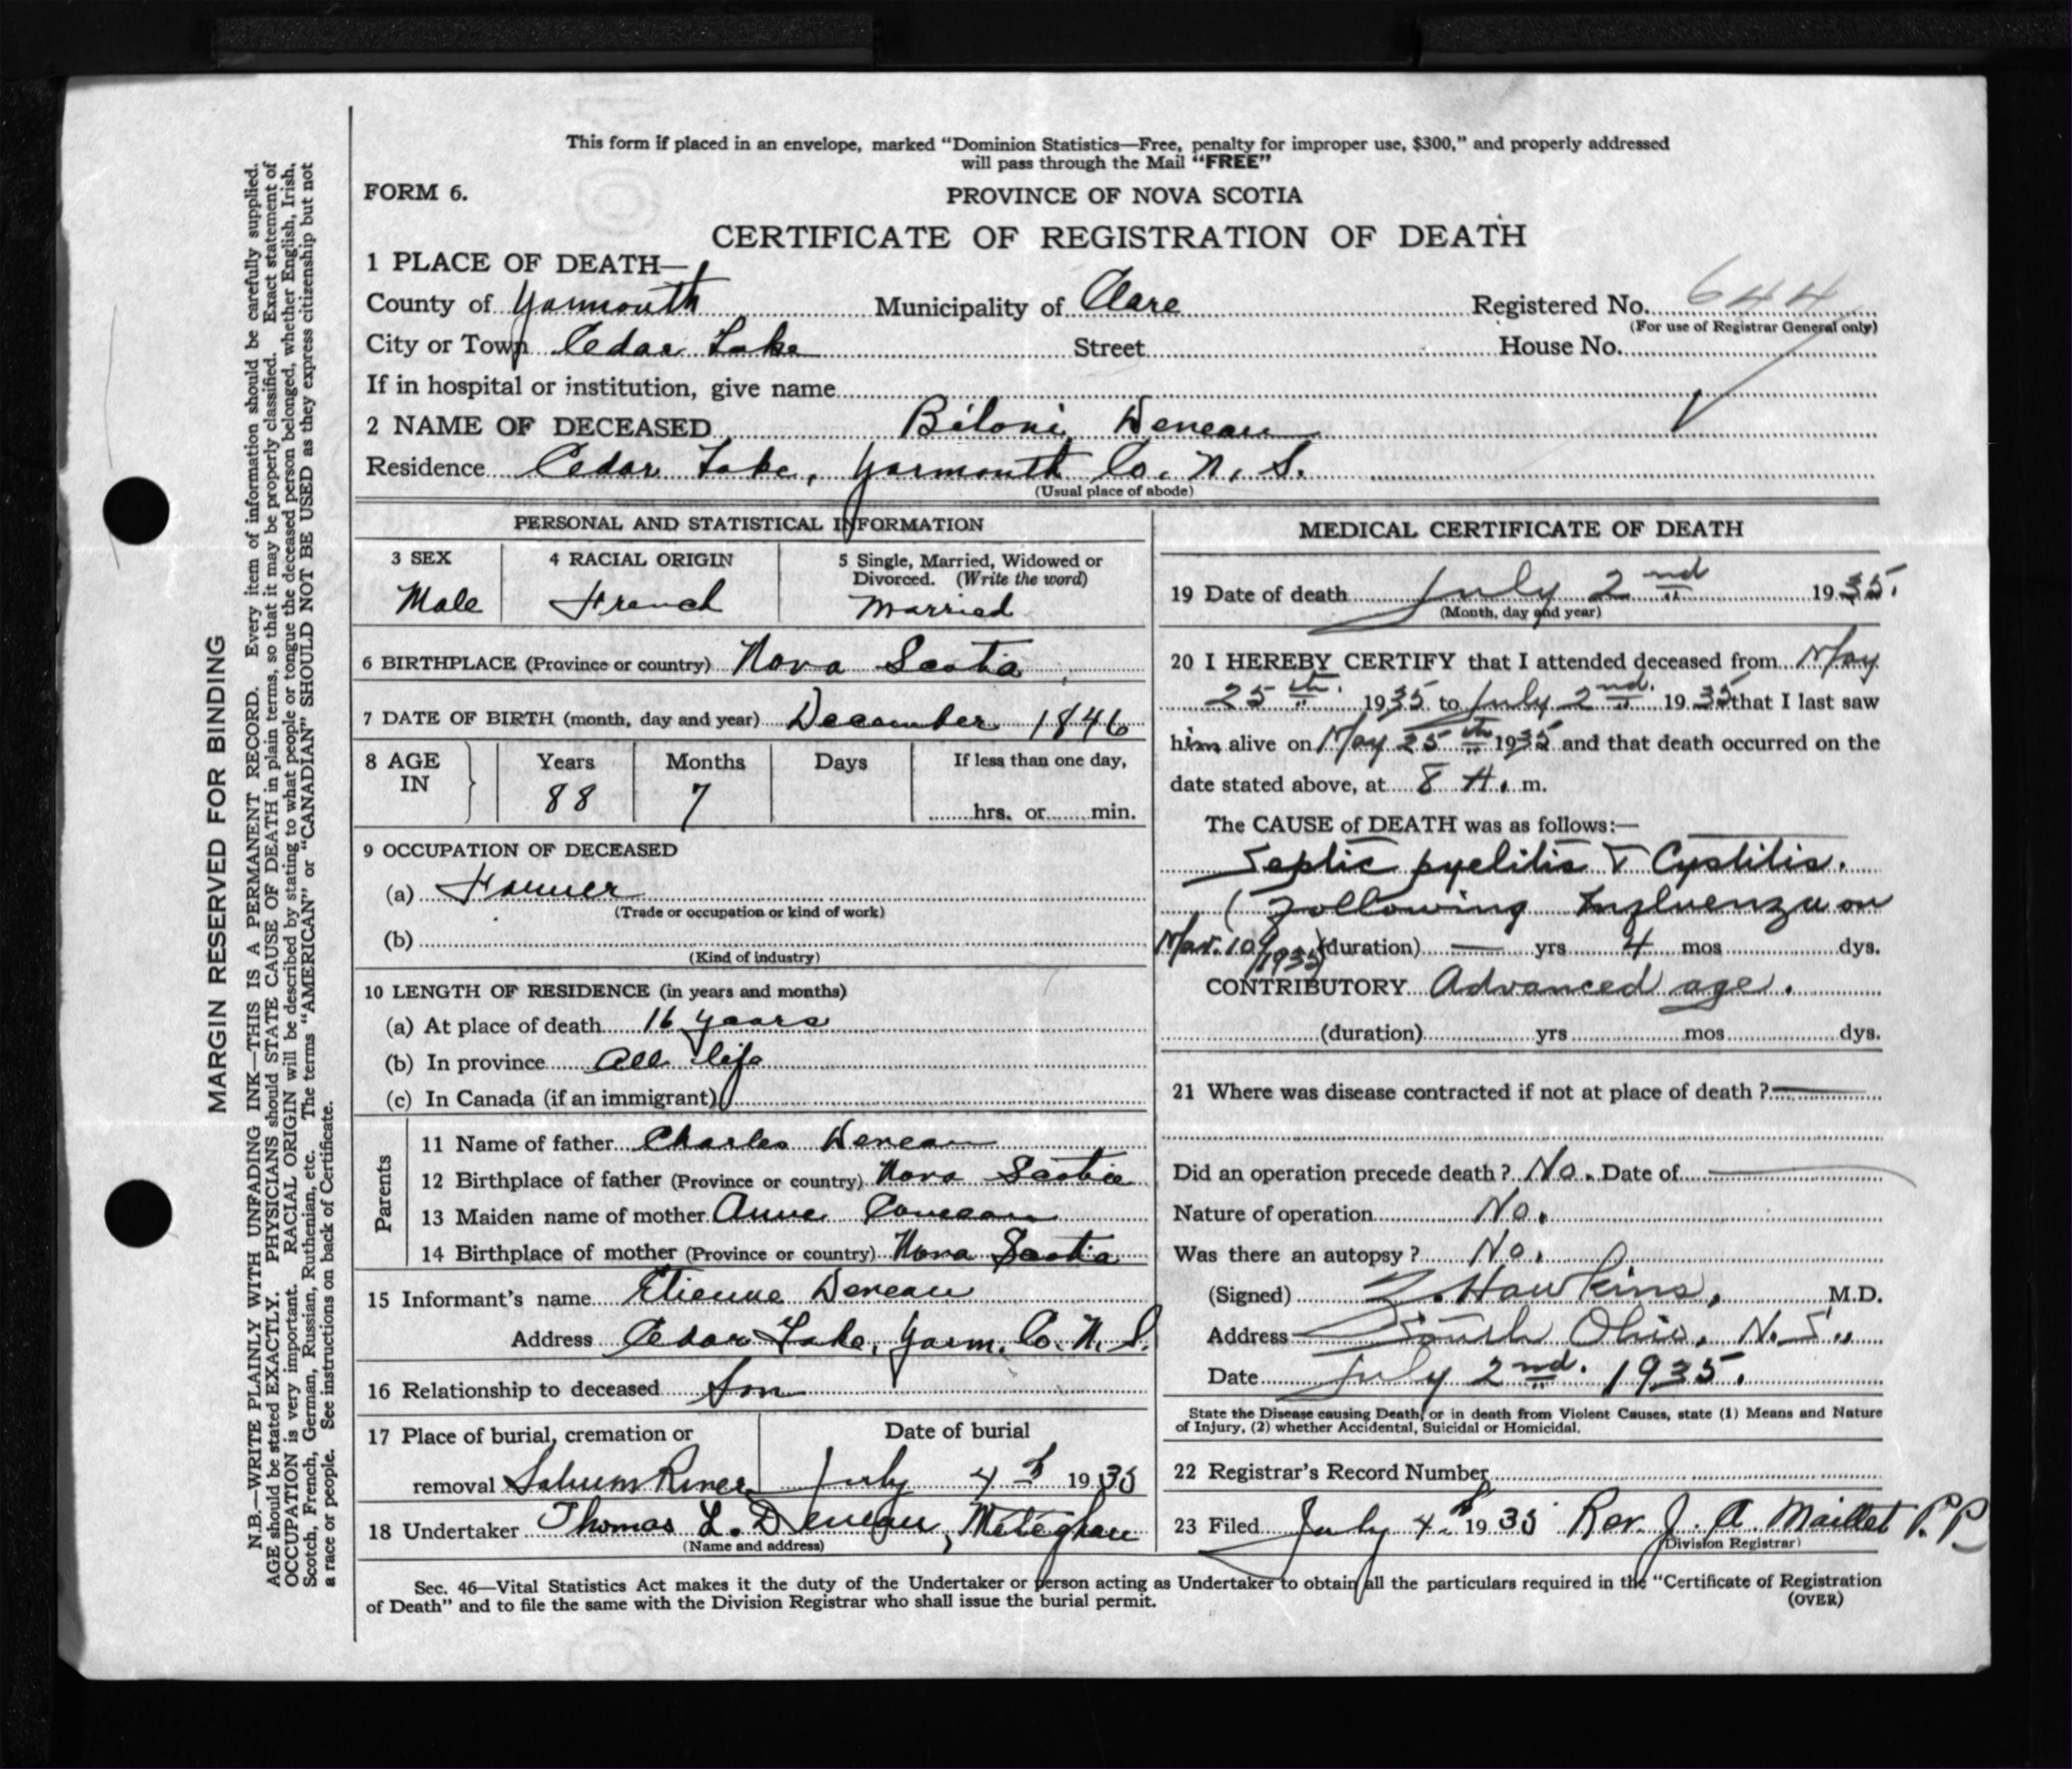 This form if placed in an envelope, marked "Dominion Statistics—Free, penalty for improper use, $300," and properly addressed
will pass through the Mail "FREE"
FORM 6.
PROVINCE OF NOVA SCOTIA
CERTIFICATE OF REGISTRATION OF DEATH
1 PLACE OF DEATH—
County of Yarmouth Municipality of Clare Registered No. 644
(For use of Registrar General only)
City or Town Cedar Lake Street House No.
If in hospital or institution, give name
2 NAME OF DECEASED Biloni Deneau
Residence Cedar Lake, Yarmouth Co. N. S.
(Usual place of abode)
PERSONAL AND STATISTICAL INFORMATION
3 SEX 4 RACIAL ORIGIN 5 Single, Married, Widowed or
Divorced. (Write the word)
Male French Married
6 BIRTHPLACE (Province or country) Nova Scotia
7 DATE OF BIRTH (month, day and year) December 1846
8 AGE IN Years Months Days If less than one day,
88 7 hrs. or min.
9 OCCUPATION OF DECEASED
(a) Farmer
(Trade or occupation or kind of work)
(b)
(Kind of industry)
10 LENGTH OF RESIDENCE (in years and months)
(a) At place of death 16 years
(b) In province all life
(c) In Canada (if an immigrant)
Parents
11 Name of father Charles Deneau
12 Birthplace of father (Province or country) Nova Scotia
13 Maiden name of mother Anne Comeau
14 Birthplace of mother (Province or country) Nova Scotia
15 Informant's name Etienne Deneau
Address Cedar Lake, Yarm. Co. N. S.
16 Relationship to deceased Son
17 Place of burial, cremation or Date of burial
removal Salmon River July 4th 1935
18 Undertaker Thomas L. Deneau, Meteghan
(Name and address)
MEDICAL CERTIFICATE OF DEATH
19 Date of death July 2nd 1935.
(Month, day and year)
20 I HEREBY CERTIFY that I attended deceased from May
25th. 1935 to July 2nd. 1935 that I last saw
him alive on May 25th 1935 and that death occurred on the
date stated above, at 8 A. m.
The CAUSE of DEATH was as follows:—
Septic pyelitis & Cystitis.
(Following Influenza on
Mar. 10/1935) (duration) — yrs 4 mos dys.
CONTRIBUTORY Advanced age.
(duration) yrs mos dys.
21 Where was disease contracted if not at place of death ?
Did an operation precede death ? No. Date of
Nature of operation No.
Was there an autopsy ? No.
(Signed) Z. Hawkins, M.D.
Address South Ohio, N. S.
Date July 2nd. 1935.
State the Disease causing Death, or in death from Violent Causes, state (1) Means and Nature
of Injury, (2) whether Accidental, Suicidal or Homicidal.
22 Registrar's Record Number
23 Filed July 4th 1935 Rev. J. A. Maillet P.P.
(Division Registrar)
Sec. 46—Vital Statistics Act makes it the duty of the Undertaker or person acting as Undertaker to obtain all the particulars required in the "Certificate of Registration
of Death" and to file the same with the Division Registrar who shall issue the burial permit.
(OVER)
MARGIN RESERVED FOR BINDING
N.B.—WRITE PLAINLY WITH UNFADING INK—THIS IS A PERMANENT RECORD. Every item of information should be carefully supplied.
AGE should be stated EXACTLY. PHYSICIANS should STATE CAUSE OF DEATH in plain terms, so that it may be properly classified. Exact statement of
OCCUPATION is very important. RACIAL ORIGIN will be described by stating to what people or tongue the deceased person belonged, whether English, Irish,
Scotch, French, German, Russian, Ruthenian, etc. The terms "AMERICAN" or "CANADIAN" SHOULD NOT BE USED as they express citizenship but not
a race or people. See instructions on back of Certificate.